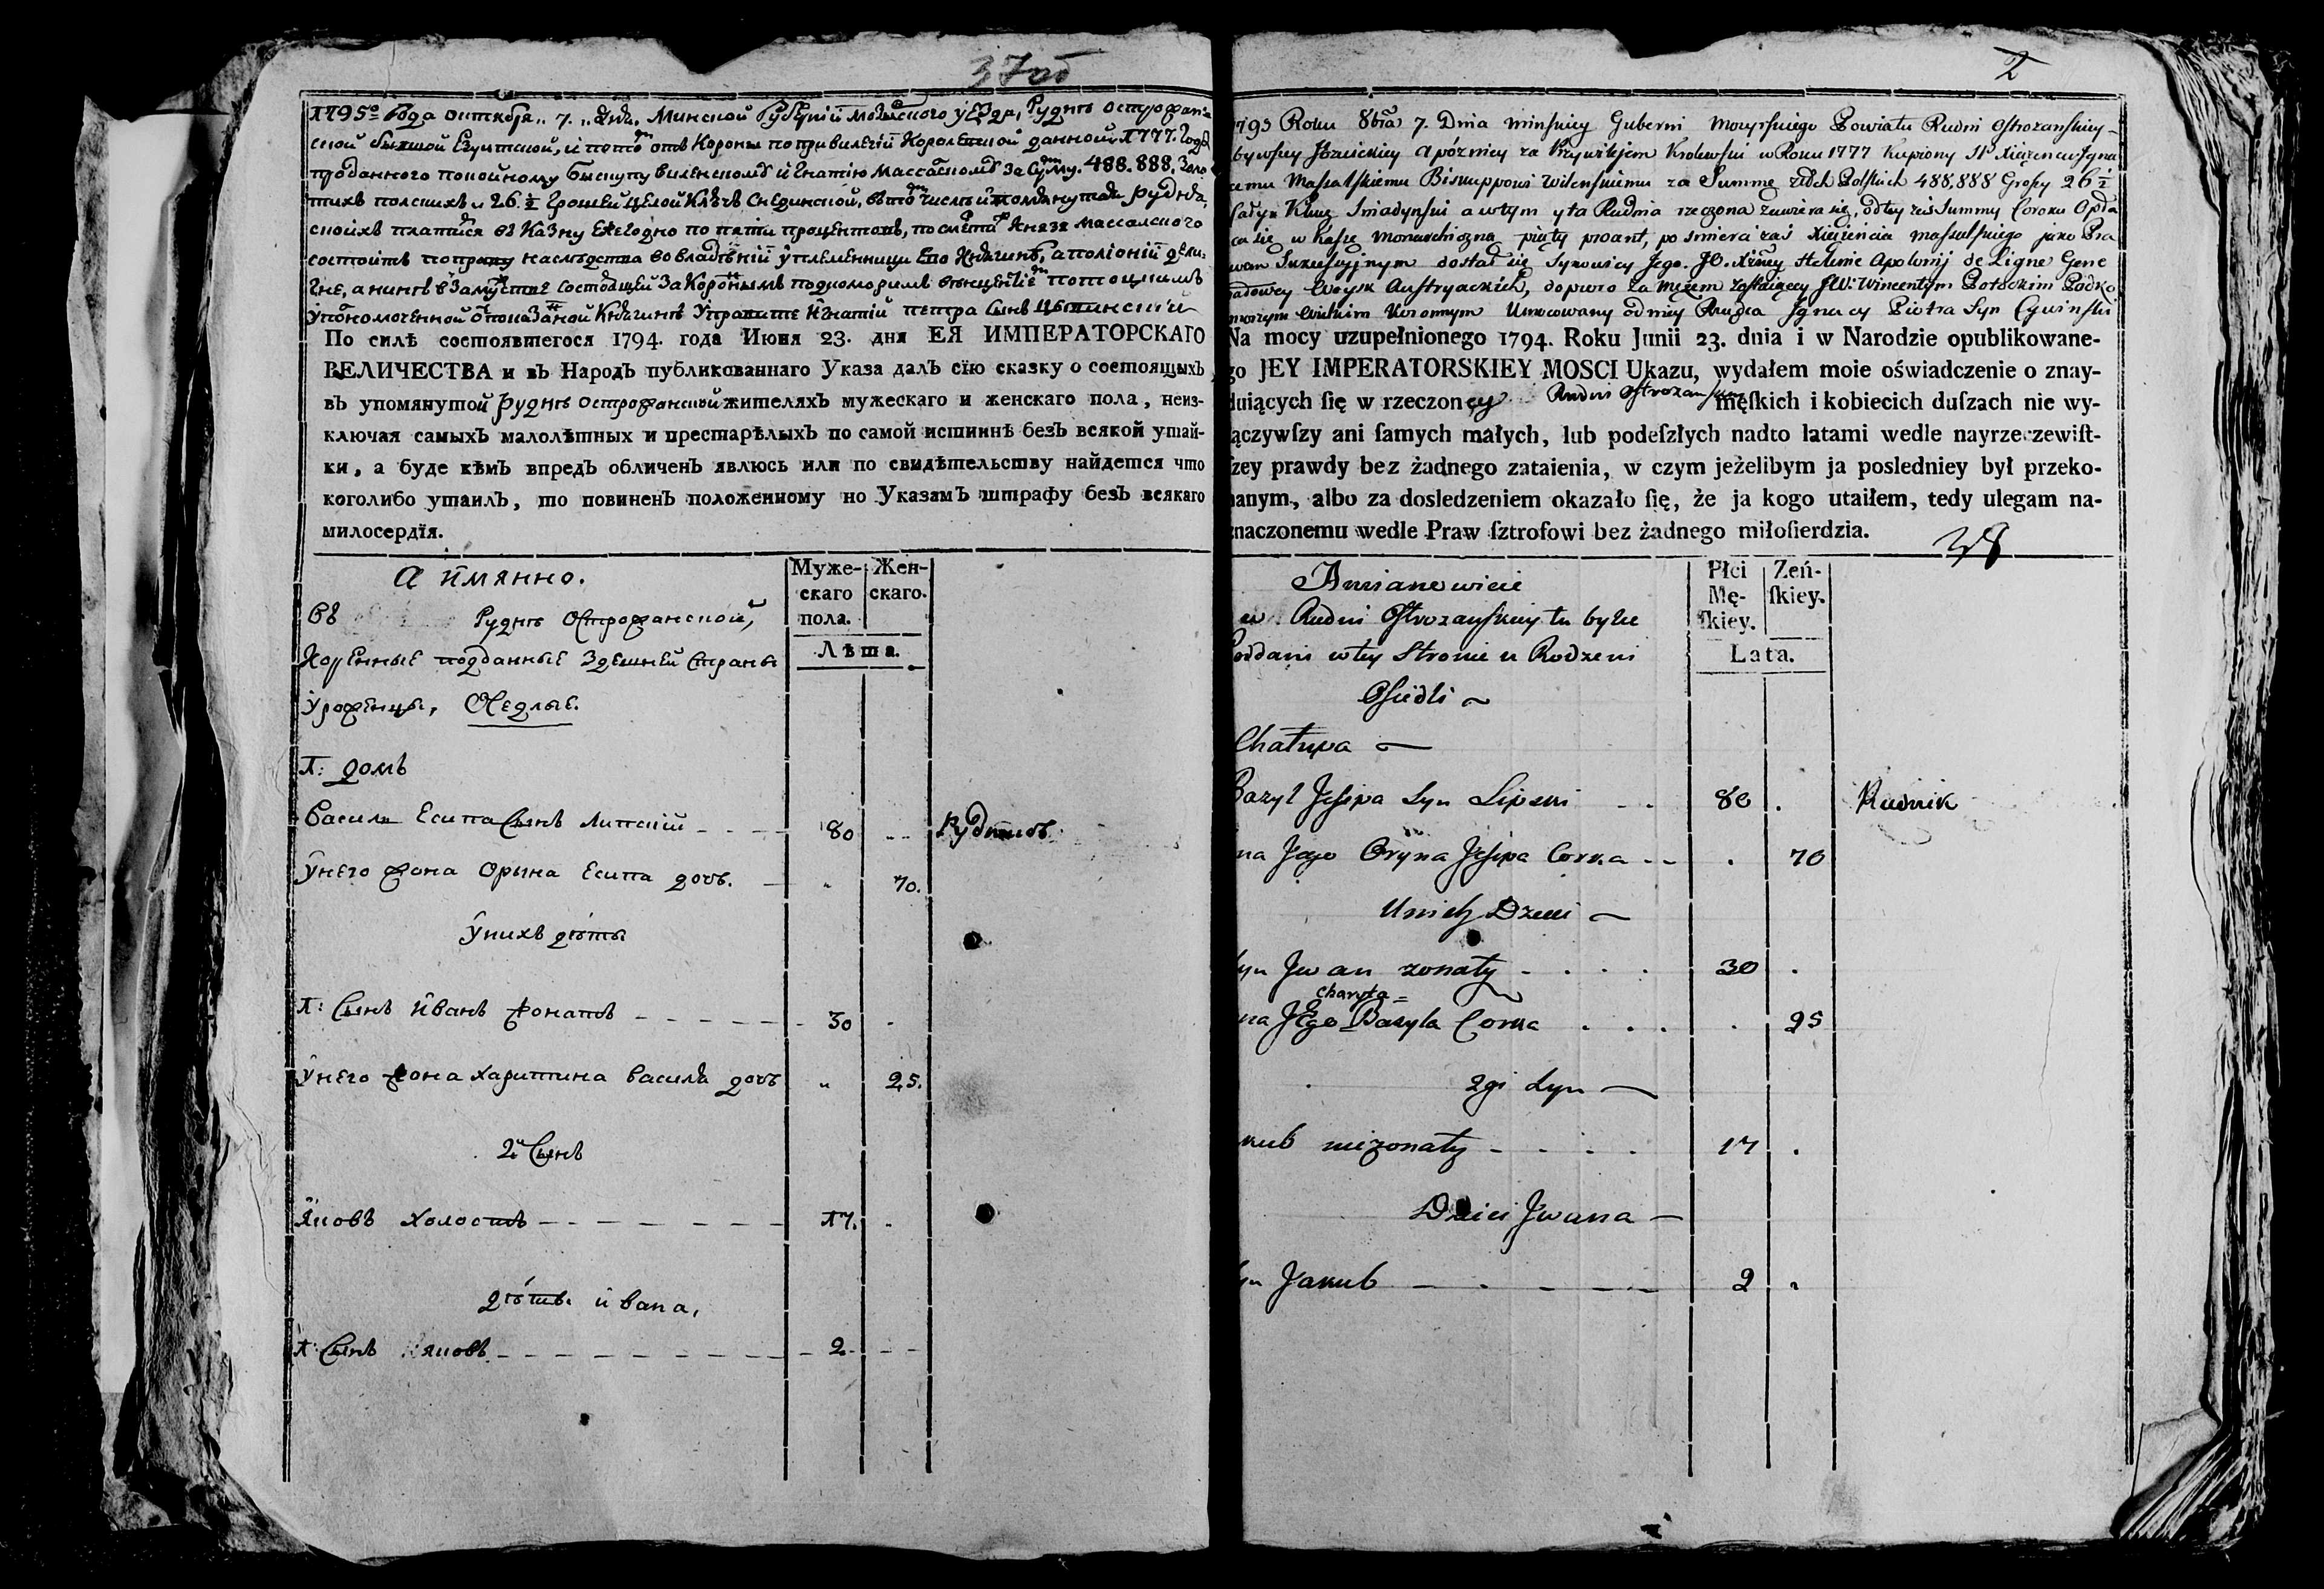 37об
1795го Года октября 7. дня. Минской Губернии Мозырского уезда, Рудне Острожан-
ской бывшой Езуитской, и потомъ отъ Короны по привилегии Королевской данной 1777. Году
проданного покойному Бискупу Виленскому Игнатию Массалскому за Сумму. 488.888. Золо
тихъ полскихъ и 26 ½ Грошей Целой Ключъ Снединской, въ томъ числѣ и помянутая Рудня,
платится въ Казну Ежегодно по пяти процентовъ, по смерти Князя Массалского
состоитъ по праву наследства во владѣнии уплеменницы Его Княгинѣ, Аполонии Дели-
гне, а нинѣ в Замужстве состоящей За Короннымъ подкоморимъ Потоцкимъ
Упономоченной Княгинѣ Игнатий Петра Сынъ
По силѣ состоявшегося 1794. года Июня 23. дня ЕЯ ИМПЕРАТОРСКАГО
ВЕЛИЧЕСТВА и въ Народъ публикованнаго Указа далъ сїю сказку о состоящыхъ
въ упомянутой Руднѣ Острожанской жителяхъ мужескаго и женскаго пола, неиз-
ключая самыхъ малолѣтныхъ и престарѣлыхъ по самой истиннѣ безъ всякой утай-
ки, а буде кѣмъ впредь обличенъ явлюсь или по свидѣтельству найдется что
коголибо утаилъ, то повиненъ положенному по Указамъ штрафу безъ всякаго
милосердїя.
А имянно.
Муже-
скаго
пола.
Жен-
скаго.
Лѣта.
Въ Руднѣ Острожанской,
Коренные подданные Здешней Страны
Уроженцы, Оседлые.
1: домъ
Василь Есипа Сынъ Липский 80 Рудникъ
У него жона Орына Есипа дочь. 70.
У нихъ дѣты
1: Сынъ Иванъ жонатъ 30
У него жона Харитина Василя дочь 25.
2й Сынъ
Яковъ холостъ 17.
дѣты Ивана,
1: Сынъ Яковъ 2
2
1795 Roku 8bra 7. Dnia Minskiey Guberni Mozyrskiego Powiatu Rudni Ostrozanskiey
bywszey Jezuickiey a pózniey za Przywilejem Krolewski w Roku 1777 Kupiony Xiązenciu Igna
cemu Massalskiemu Biskuppowi Wilenskiemu za Summę złch Polskich 488,888 Groszy 26 ½
Klucz Sniadynski a wtym y ta Rudnia rzeczona zawiera się, od tey zaś Summy Coroku Opła
ca się w Kassę Monarchiczną piąty procent, po smierci zaś Xiążęcia Massalskiego jako Pra
wem Sukcessyjnym dostał się Synowicy Jego. JO. Xżney Helenie Apolonij de Ligne Gene
rałowey Woysk Austryackich, dopiero za mężem zostaiącey JW: Wincentym Potockim Podko
morzym Wielkim Koronnym Umocowany od niey Rządca Ignacy Piotra Syn
Na mocy uzupełnionego 1794. Roku Junii 23. dnia i w Narodzie opublikowane-
go JEY IMPERATORSKIEY MOSCI Ukazu, wydałem moie oświadczenie o znay-
duiących ſię w rzeczoney Rudni Ostrozanskiey męſkich i kobiecich duſzach nie wy-
łączywſzy ani ſamych małych, lub podeſzłych nadto latami wedle nayrzeczewiſt-
ſzey prawdy bez żadnego zataienia, w czym jeżelibym ja posledniey był przeko-
nanym, albo za dosledzeniem okazało ſię, że ja kogo utaiłem, tedy ulegam na-
znaczonemu wedle Praw ſztrofowi bez żadnego miłoſierdzia.
38
A mianowicie
Płci
Mę-
ſkiey.
Zeń-
ſkiey.
Lata.
w Rudni Ostrozanskiey tu byłe
Poddani w tey Stronie u Rodzeni
Osiedli
Chałupa
Bazyl Jesipa Syn Lipski 80 Rudnik
na Jego Oryna Jesipa Corka 70
U nich Dzieci
Syn Jwan zonaty 30
Charyta=
na Jego Bazyla Corka 25
2gi Syn
Jakub niezonaty 17
Dzieci Jwana
Syn Jakub 2